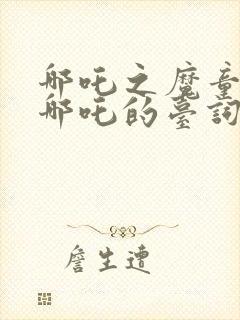 哪吒之魔童
哪吒的臺詞
詹生遭